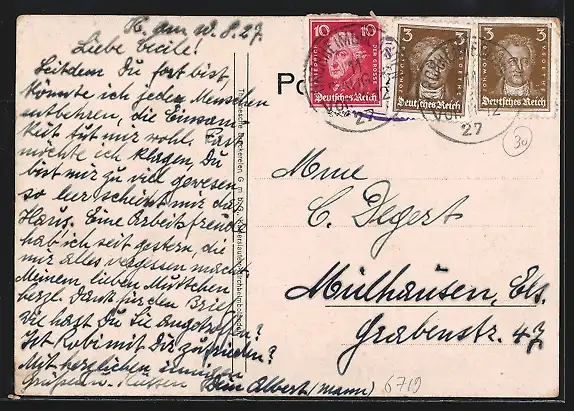 K. am 10.8.27.
Liebe Cecile!
Seitdem Du fort bist,
könnte ich jeden Menschen
entbehren, die Einsam-
keit tut mir wohl. Fast
möchte ich klagen, Du
bist mir zu viel gewesen
so leer scheint mir das
Haus. Eine Arbeitsfreude
hab ich seit gestern, die
mir alles vergessen macht.
Meinem lieben Mütterchen
herzl. Dank für den Brief.
Wie hast Du Sie angetroffen?
Ist Robi mit Dir zufrieden?
Mit herzlichen innigen
Grüßen u. Küssen Dein Albert (mann)
Thüringische Druckereien G. m. b. H.
Po
10 10
FRIEDRICH DER GROSSE
Deutsches Reich
3 3
JOH. WOLFG. V. GOETHE
Deutsches Reich
3 3
JOH. WOLFG. V. GOETHE
Deutsches Reich
27
12
27
30
Mme
C. Degert
Mülhausen, Els.
Grabenstr. 47
6719